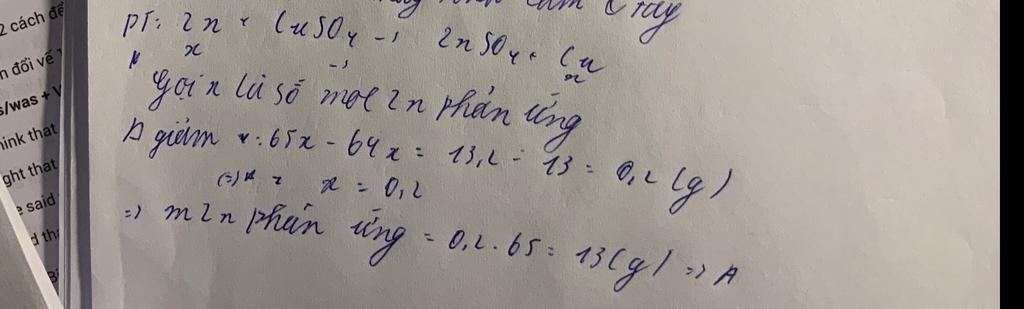 2 cách để
n đổi về
s/was + V
hink that
ght that
e said
d tha
PT: Zn + CuSO4 → ZnSO4 + Cu
x → x
Gọi x là số mol Zn phản ứng
Δ giảm : 65x - 64x = 13,2 - 13 = 0,2 (g)
(=) x = 0,2
=> m Zn phản ứng = 0,2 . 65 = 13 (g) => A